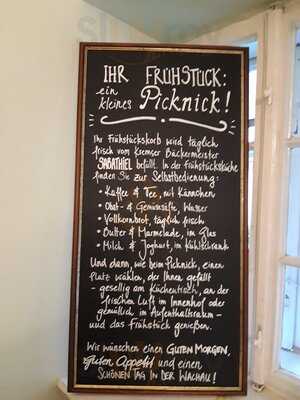 IHR FRÜHSTÜCK:
ein
kleines Picknick!
Ihr Frühstückskorb wird täglich
frisch vom Kremser Bäckermeister
SABATHIEL befüllt. In der Frühstücksküche
finden Sie zur Selbstbedienung:
• Kaffee & Tee, mit Kännchen
• Obst- & Gemüsesäfte, Wasser
• Vollkornbrot, täglich frisch
• Butter & Marmelade, im Glas
• Milch & Joghurt, im Kühlschrank
Und dann, wie beim Picknick, einen
Platz wählen, der Ihnen gefällt
- gesellig am Küchentisch, an der
frischen Luft im Innenhof oder
gemütlich im Aufenthaltsraum -
und das Frühstück genießen.
Wir wünschen einen GUTEN MORGEN,
Guten Appetit und einen
SCHÖNEN TAG IN DER WACHAU!